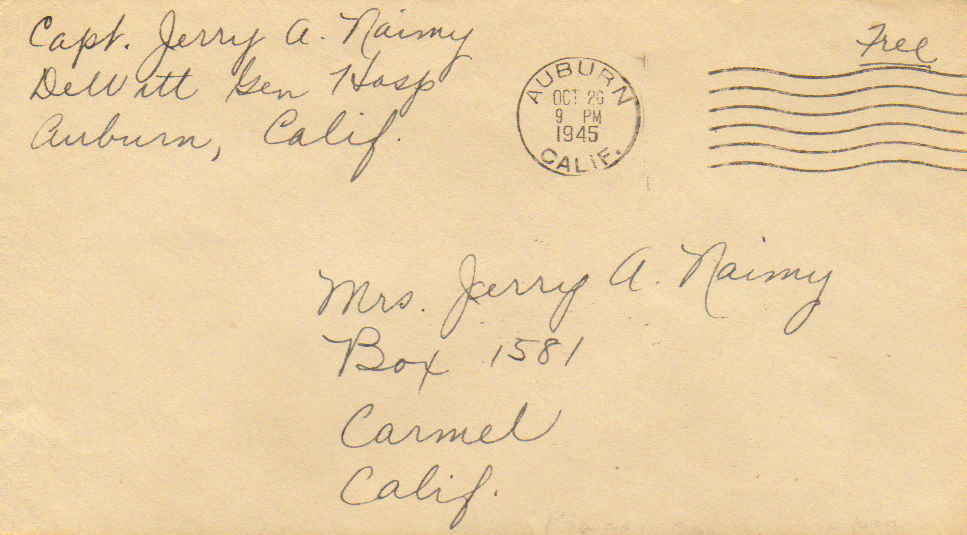 Capt. Jerry A. Naimy
DeWitt Gen Hosp
Auburn, Calif.
Free
AUBURN
OCT 26
9 PM
1945
CALIF.
Mrs. Jerry A. Naimy
Box 1581
Carmel
Calif.